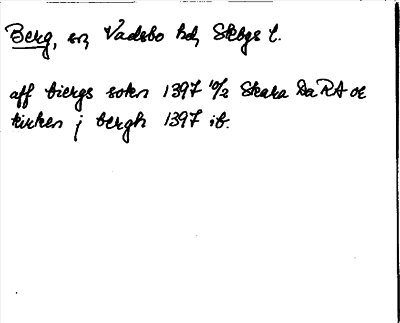 Berg, sn, Vadsbo hd, Skbgs l.
aff biergs sokn 1397 10/2 Skara Da RA or
kirken j bergh 1397 ib.